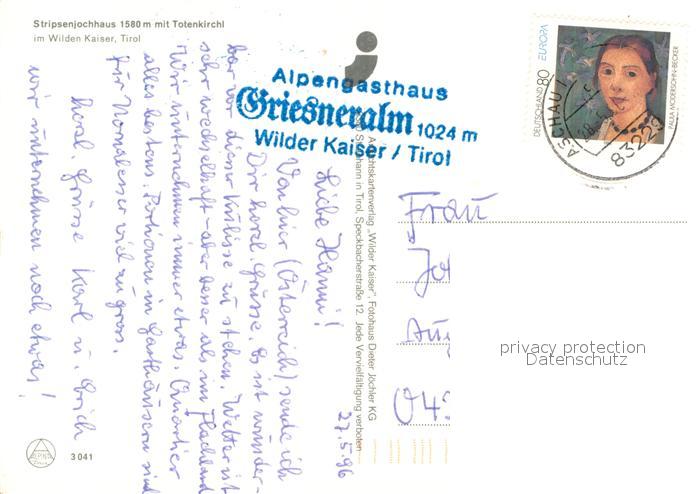 Stripsenjochhaus 1580 m mit Totenkirchl
im Wilden Kaiser, Tirol
Alpengasthaus
Griesneralm 1024 m
Wilder Kaiser / Tirol
27.5.96
Liebe Hanni!
Von hier (Österreich) sende ich
Dir herzl. Grüsse. Es ist wunder-
bar vor dieser Kulisse zu stehen. Wetter ist
sehr wechselhaft - aber besser als im Flachland
Wir unternehmen immer etwas. Quartier
alles bestens. Portionen in Gasthäusern sind
für Normalesser viel zu gross.
Herzl. Grüsse Karl u. Erich
wir unternehmen noch etwas!
Ansichtskartenverlag „Wilder Kaiser“, Fotohaus Dieter Jöchler KG
St. Johann in Tirol, Speckbacherstraße 12. Jede Vervielfältigung verboten
DEUTSCHLAND 80 EUROPA
PAULA MODERSOHN-BECKER
ASCHAU
83229
Frau
Jo
privacy protection
Datenschutz
ALPINA
3 041